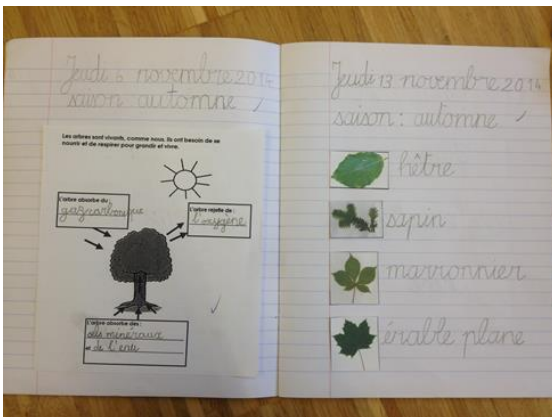 Jeudi 6 novembre 2014
saison : automne
Les arbres sont vivants, comme nous. Ils ont besoin de se
nourrir et de respirer pour grandir et vivre.
L'arbre absorbe du :
gaz carbonique
L'arbre rejette de :
l'oxygène
L'arbre absorbe des :
des minéraux
de l'eau
Jeudi 13 novembre 2014
saison : automne
hêtre
sapin
marronnier
érable plane